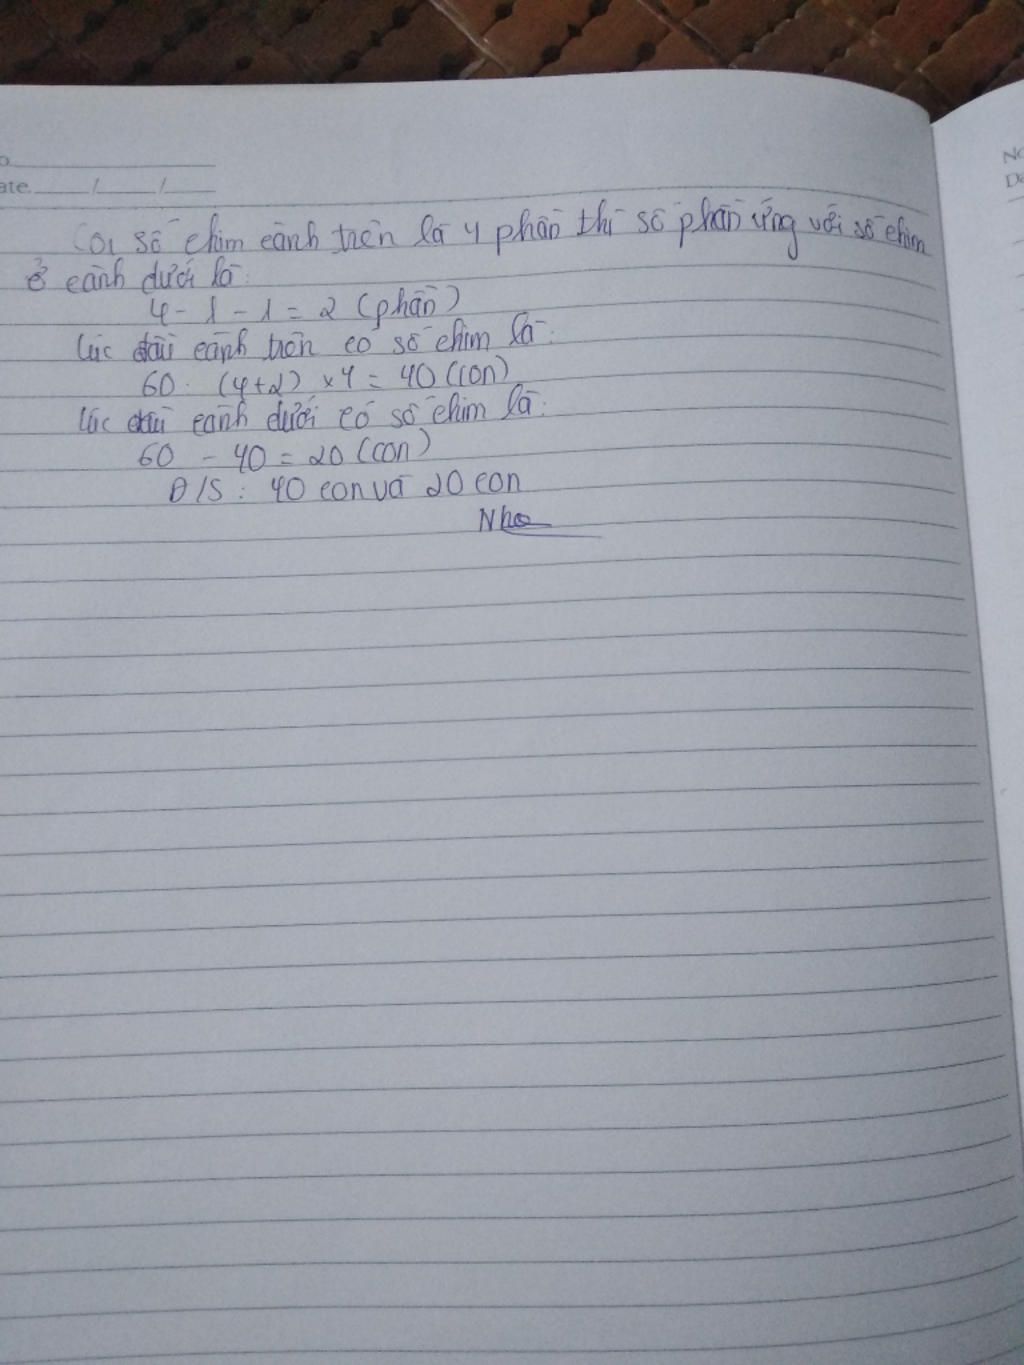 o
ate / /
No
De
Coi số chim cành trên là 4 phần thì số phần ứng với số chim
ở cành dưới là:
4 - 1 - 1 = 2 (phần)
Lúc đầu cành trên có số chim là:
60 : (4+2) x 4 = 40 (con)
Lúc đầu cành dưới có số chim là:
60 - 40 = 20 (con)
Đ/S : 40 con và 20 con
Nha